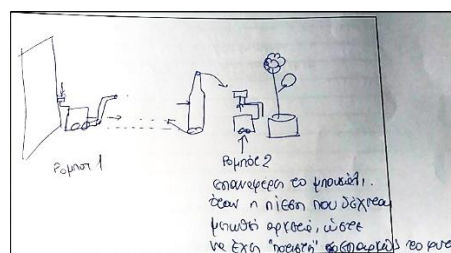 Ρομποτ 1
Ρομπότ 2
επαναφέρει το μπουκάλι,
όταν η πίεση που δέχεται
μειωθεί αρκετά, ώστε
να έχει "ποτιστή" επαρκώς το φυτό